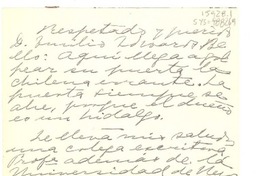 Respetado y querido
D. Emilio Edwards Be
llo: Aquí llega a gol
pear su puerta la
chilena errante. La
puerta siempre se
abre, porque el dueño
es un hidalgo.
Le lleva mis saludos
una colega escritora
Profª además de la
Universidad de